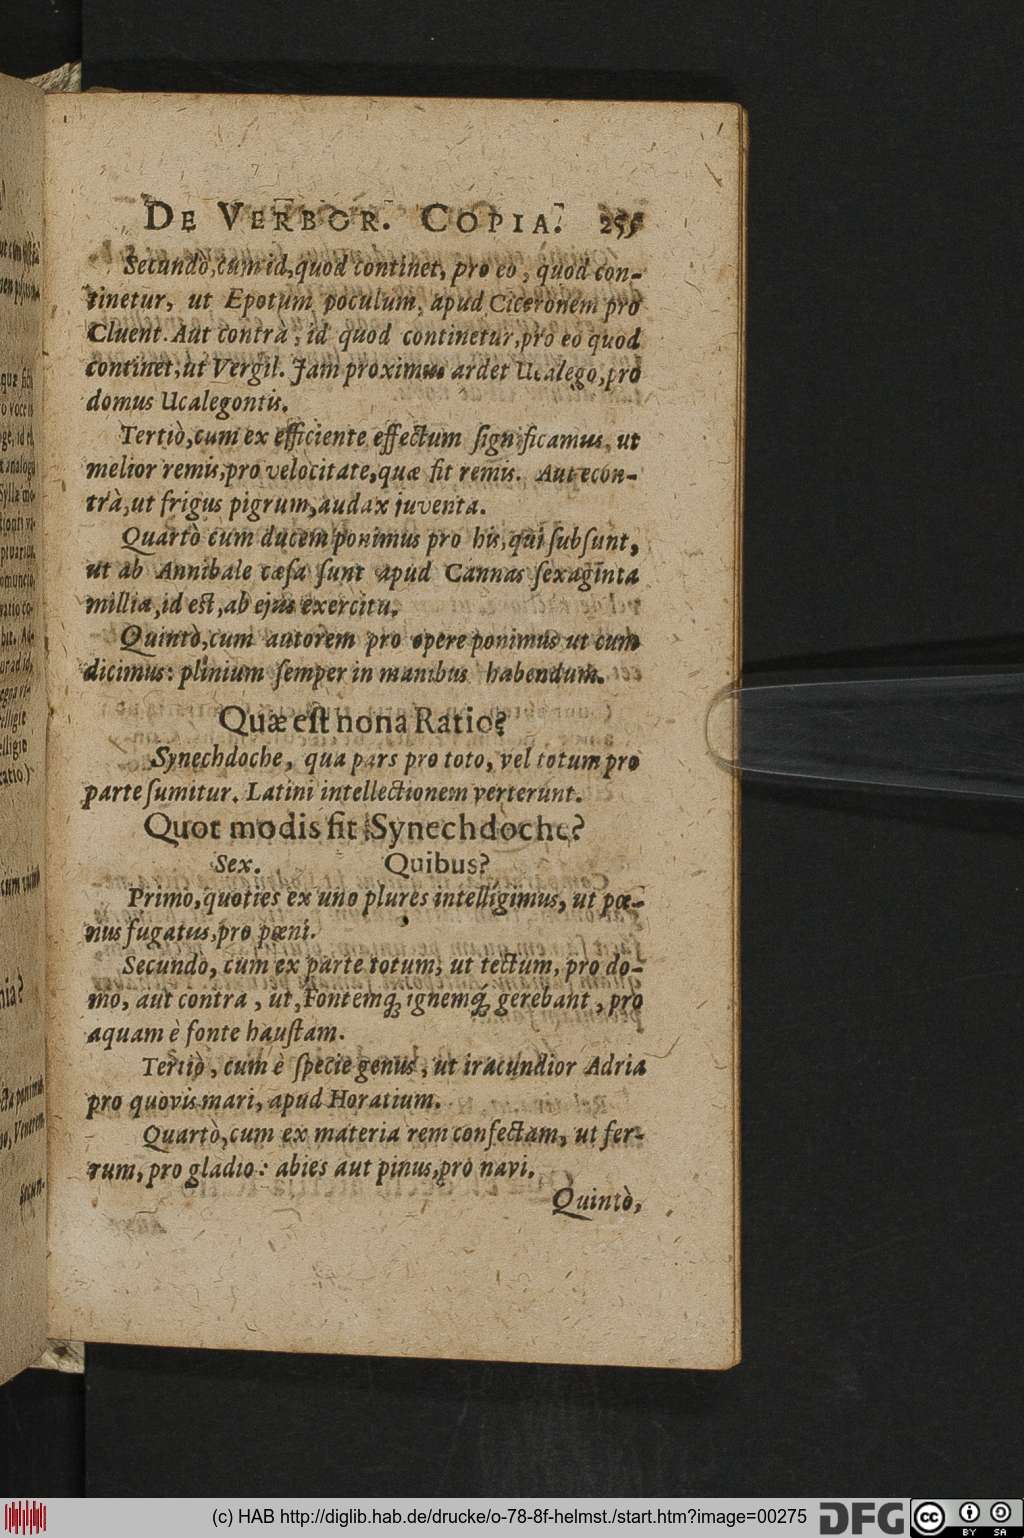 DE VERBOR. COPIA. 255
Secundò, cum id, quod continet, pro eo, quod con-
tinetur, ut Epotum poculum, apud Ciceronem pro
Cluent. Aut contrà, id quod continetur, pro eo quod
continet, ut Vergil. Jam proximus ardet Ucalego, pro
domus Ucalegontis.
Tertiò, cum ex efficiente effectum ſignificamus, ut
melior remis, pro velocitate, quæ fit remis. Aut econ-
trà, ut frigus pigrum, audax juventa.
Quartò cum ducem ponimus pro his, qui ſubſunt,
ut ab Annibale cæſa ſunt apud Cannas ſexaginta
millia, id eſt, ab ejus exercitu.
Quintò, cum autorem pro opere ponimus ut cum
dicimus: plinium ſemper in manibus habendum.
Quæ eſt nona Ratio?
Synechdoche, qua pars pro toto, vel totum pro
parte ſumitur. Latini intellectionem verterunt.
Quot modis fit Synechdoche?
Sex. Quibus?
Primò, quoties ex uno plures intelligimus, ut pœ-
nus fugatus, pro pœni.
Secundò, cum ex parte totum, ut tectum, pro do-
mo, aut contra, ut, Fontemq́; ignemq́; gerebant, pro
aquam è fonte hauſtam.
Tertiò, cum è ſpecie genus, ut iracundior Adria
pro quovis mari, apud Horatium.
Quartò, cum ex materia rem confectam, ut fer-
rum, pro gladio: abies aut pinus, pro navi.
Quintò,
(c) HAB http://diglib.hab.de/drucke/o-78-8f-helmst./start.htm?image=00275
DFG
cc BY SA